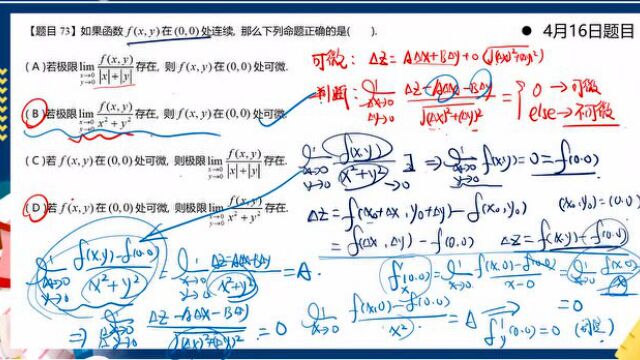 【题目 73】如果函数 f(x,y) 在 (0,0) 处连续, 那么下列命题正确的是( ).
● 4月16日题目
(A) 若极限 lim_{x→0, y→0} f(x,y)/(|x|+|y|) 存在, 则 f(x,y) 在 (0,0) 处可微.
(B) 若极限 lim_{x→0, y→0} f(x,y)/(x²+y²) 存在, 则 f(x,y) 在 (0,0) 处可微.
(C) 若 f(x,y) 在 (0,0) 处可微, 则极限 lim_{x→0, y→0} f(x,y)/(|x|+|y|) 存在.
(D) 若 f(x,y) 在 (0,0) 处可微, 则极限 lim_{x→0, y→0} f(x,y)/(x²+y²) 存在.
可微: ΔZ = AΔx+BΔy+o(√((Δx)²+(Δy)²))
判断: lim_{Δx→0, Δy→0} (ΔZ-AΔx-BΔy)/√((Δx)²+(Δy)²) = { 0 → 可微
else → 不可微
lim_{x→0, y→0} f(x,y)/(x²+y²) ∃ ⇒ lim_{x→0, y→0} f(x,y)=0=f(0,0)
→0
ΔZ = f(x₀+Δx, y₀+Δy)-f(x₀,y₀) (x₀,y₀)=(0,0)
= f(Δx,Δy)-f(0,0) ΔZ = f(x,y)-f(0,0)
lim_{x→0, y→0} (f(x,y)-f(0,0))/(x²+y²) = lim_{x→0, y→0} (ΔZ-AΔx-BΔy)/(x²+y²) = A.
f'x(0,0) = lim_{x→0} (f(x,0)-f(0,0))/(x-0) = lim_{x→0}
=0
⇒ lim_{x→0, y→0} (ΔZ-AΔx-BΔy)/√((Δx)²+(Δy)²) = 0
lim_{x→0} (f(x,0)-f(0,0))/x² = A ⇒ f'y(0,0)=0